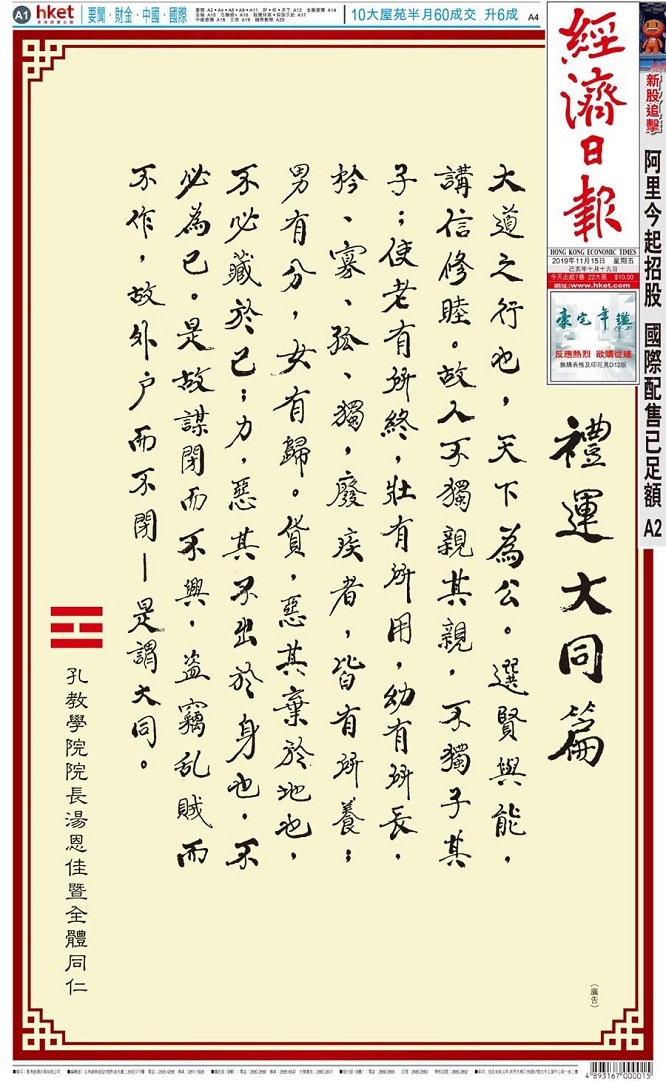 A1 hket 要聞‧財金‧中國‧國際
10大屋苑半月60成交 升6成 A4
經濟日報
HONG KONG ECONOMIC TIMES
2019年11月15日 星期五
己亥年十月十九日
今天出紙7疊 22大張 $10.00
網址:www.hket.com
豪宅年鑑
反應熱烈 欲購從速
換購表格及印花見D12版
新股追擊
阿里今起招股 國際配售已足額 A2
禮運大同篇
大道之行也，天下為公。選賢與能，
講信修睦。故人不獨親其親，不獨子其
子；使老有所終，壯有所用，幼有所長，
矜、寡、孤、獨，廢疾者，皆有所養；
男有分，女有歸。貨，惡其棄於地也，
不必藏於己；力，惡其不出於身也，不
必為己。是故謀閉而不興，盜竊乱賊而
不作，故外户而不閉—是謂大同。
孔教學院院長湯恩佳暨全體同仁
（廣告）
4 893167 000015